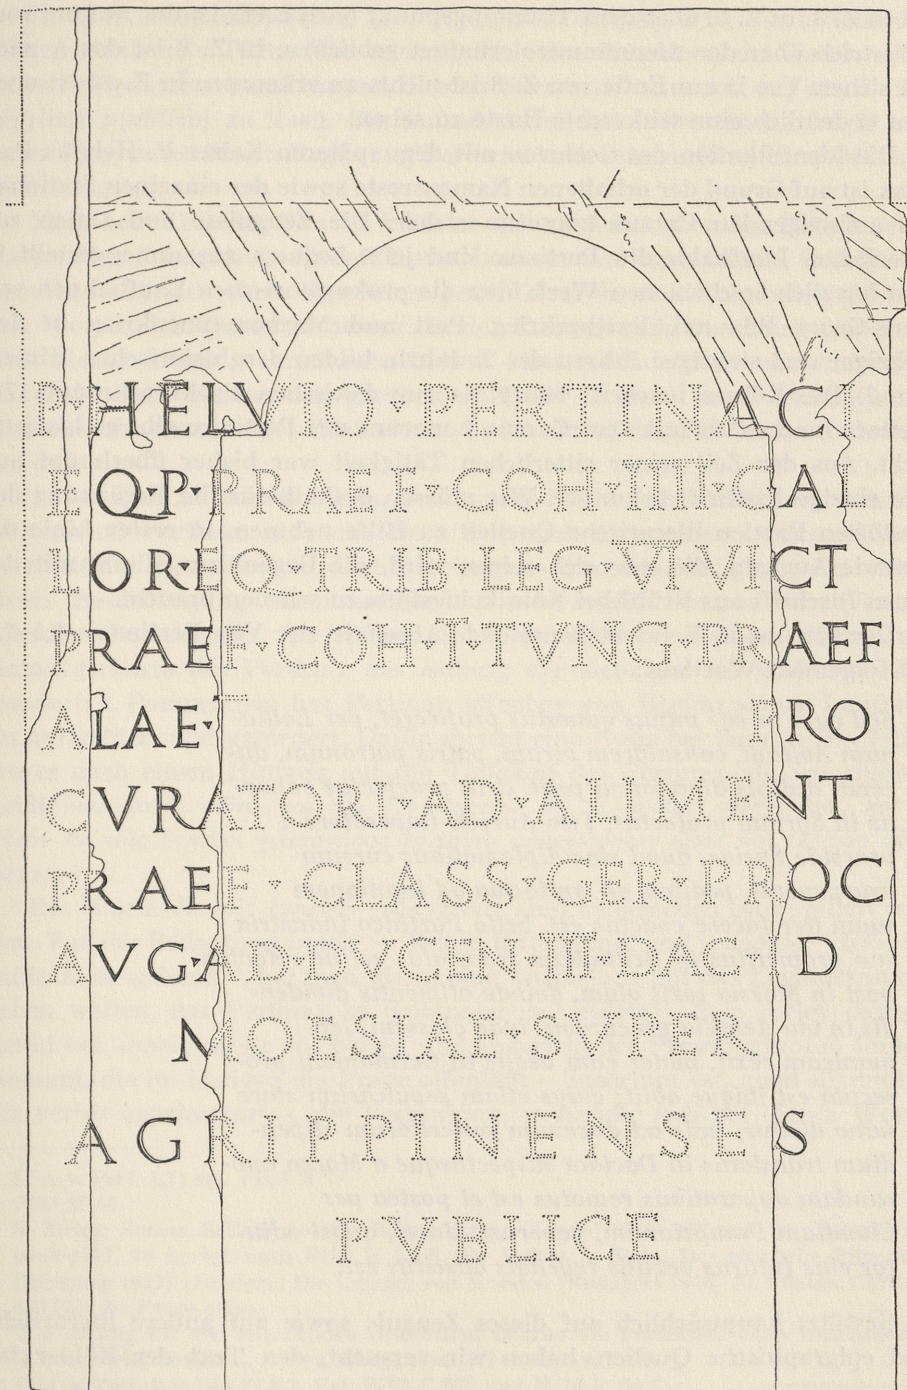 P·HELVIO·PERTINACI
EQ·P·PRAEF·COH·IIII·GAL
LOR·EQ·TRIB·LEG·VI·VICT
PRAEF·COH·I·TVNG·PRAEF
ALAE· PRO
CVRATORI·AD·ALIMENT
PRAEF·CLASS·GER·PROC
AVG·AD·DVCEN·III·DAC·ID
MOESIAE·SVPER
AGRIPPINENSES
PVBLICE